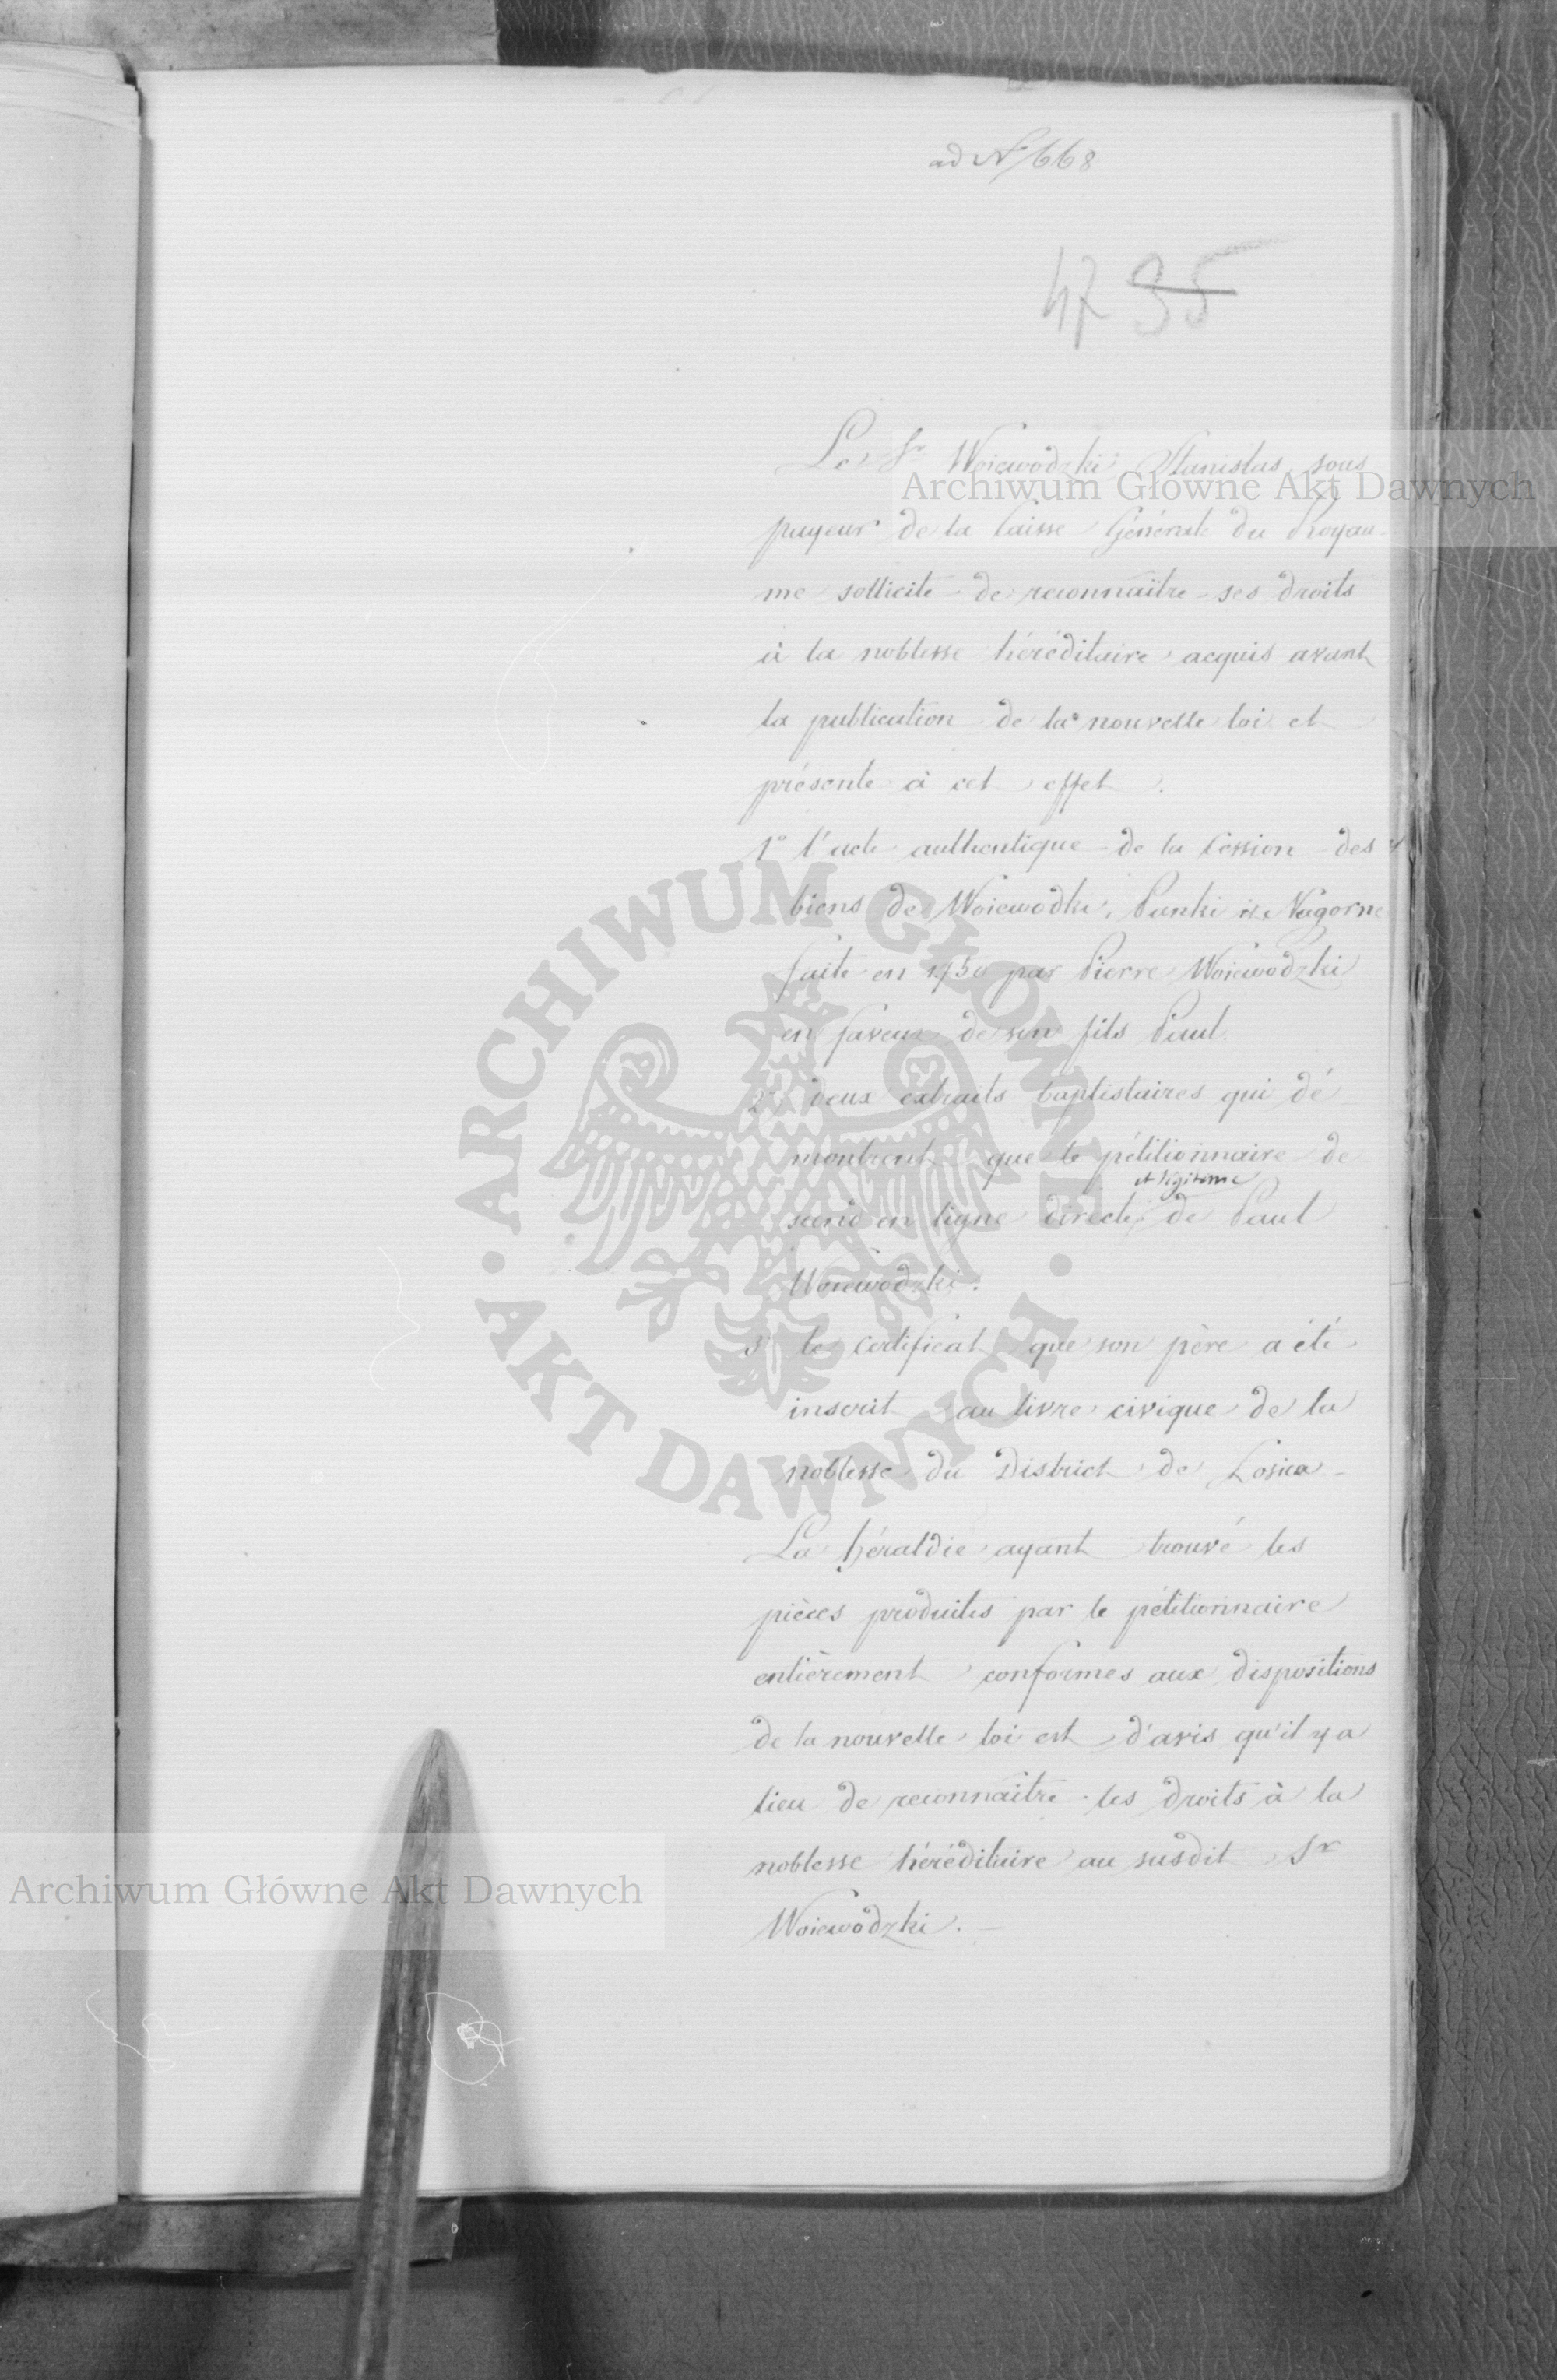 ad N 668
47 95
Le Sr Woiewódzki Stanislas sous
payeur de la Caisse Générale du Royau-
me sollicite de reconnaître ses droits
à la noblesse héréditaire acquis avant
la publication de la nouvelle loi et
présente à cet effet.
1° l'acte authentique de la Cession des
biens de Woiewodki, Panki Nagorne
faite en 1750 par Pierre Woiewódzki
en faveur de son fils Paul.
2° deux extraits baptistaires qui dé-
montrent que le pétitionnaire de
et légitime
scend en ligne directe de Paul
Woiewódzki.
3° le certificat que son père a été
inscrit au livre civique de la
noblesse du District de Losice.
La héraldie ayant trouvé les
pièces produites par le pétitionnaire
entièrement conformes aux dispositions
de la nouvelle loi est d'avis qu'il y a
lieu de reconnaître les droits à la
noblesse héréditaire au susdit Sr
Woiewódzki.
Archiwum Główne Akt Dawnych
ARCHIWUM GŁÓWNE AKT DAWNYCH
Archiwum Główne Akt Dawnych